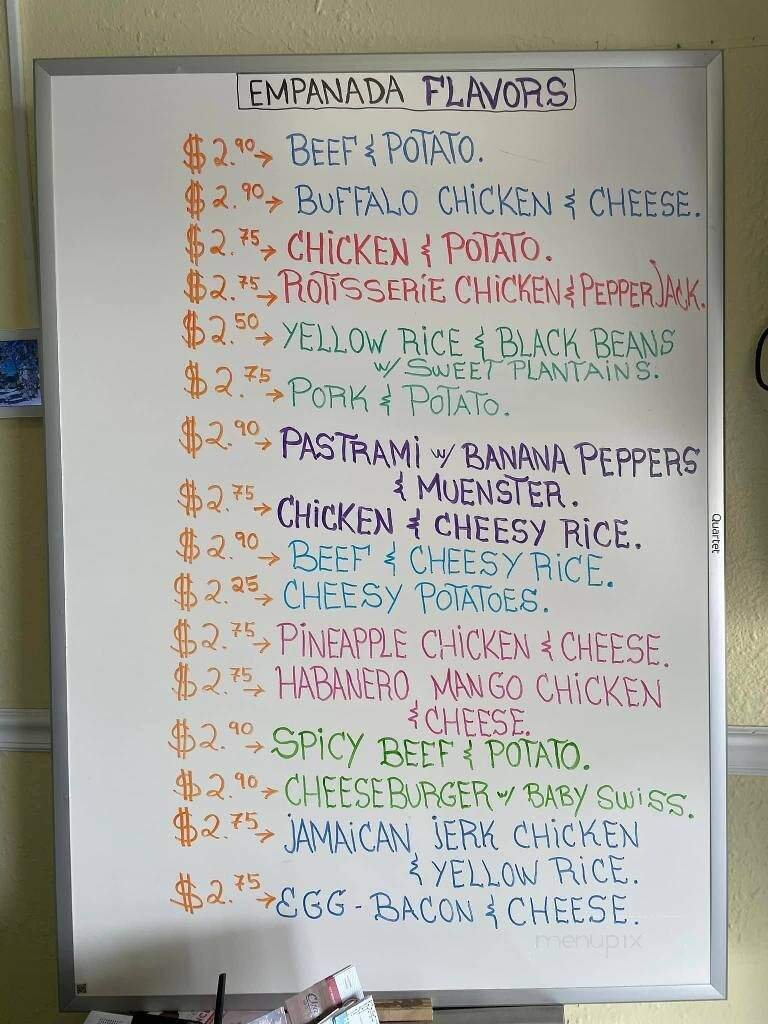 EMPANADA FLAVORS
$2.90→ BEEF & POTATO.
$2.90→ BUFFALO CHICKEN & CHEESE.
$2.75→ CHICKEN & POTATO.
$2.75→ ROTISSERIE CHICKEN & PEPPER JACK.
$2.50→ YELLOW RICE & BLACK BEANS
w/ SWEET PLANTAINS.
$2.75→ PORK & POTATO.
$2.90→ PASTRAMI w/ BANANA PEPPERS
& MUENSTER.
$2.75→ CHICKEN & CHEESY RICE.
$2.90→ BEEF & CHEESY RICE.
$2.25→ CHEESY POTATOES.
$2.75→ PINEAPPLE CHICKEN & CHEESE.
$2.75→ HABANERO MANGO CHICKEN
& CHEESE.
$2.90→ SPICY BEEF & POTATO.
$2.90→ CHEESEBURGER w/ BABY SWISS.
$2.75→ JAMAICAN JERK CHICKEN
& YELLOW RICE.
$2.75→ EGG - BACON & CHEESE.
Quartet
menupix